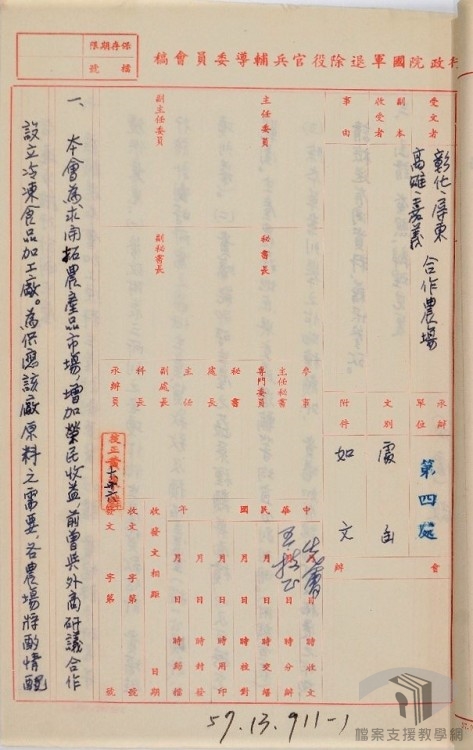 行政院國軍退除役官兵輔導委員會稿
保存期限
檔號
受文者
彰化、屏東
高雄、嘉義
合作農場
副本收受者
事由
承辦單位
第四處
會辦
文別
處函
附件
如文
主任委員
副主任委員
秘書長
副秘書長
參事
主任秘書
專門委員
秘書
處長
副處長
主任
科長
承辦員
中華民國年
月日時收文
月日時分辦
月日時交繕
月日時校對
月日時用印
月日時封發
月日時歸檔
收發文相距日期
收文字第號
發文字第號
一、本會為求開拓農產品市場，增加榮民收益，前曾與外商研議合作
設立冷凍食品加工廠。為供應該廠原料之需要，各農場將酌情配
57.13.911-1
檔案支援教學網